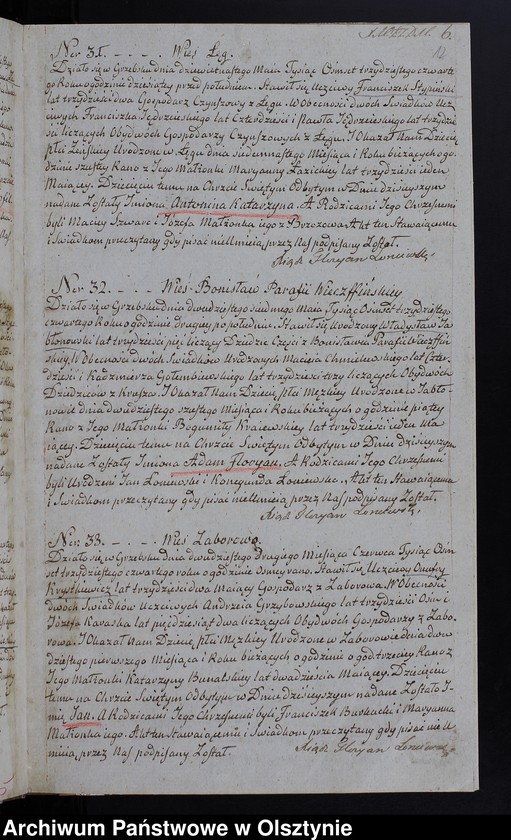 6.
12
Ner 31. Wieś Łęg.
Działo się w Grzebsku dnia dziewiętnastego Maia Tysiąc Osmset trzydziestego czwarte
go Roku ogodzinie dziesiątey przed południem. Stawił się Uczciwy Franciszek
lat trzydzieści dwa Gospodarz Czynszowy z Łęgu. W Obecności dwóch Świadków Ucz
ciwych Franciszka Jędrzeiewskiego lat Czterdzieści i Pawła Jędrzeiewskiego lat trzydzie
ści liczących Obydwóch Gospodarzy Czynszowych z Łęgu. I Okazał Nam Dziecię
płci Żeńskiey Urodzone w Łęgu dnia siedemnastego Miesiąca i Roku bieżących ogo
dzinie szostey Rano z Jego Małżonki Maryanny Łazickiey lat trzydzieści ieden
Maiącey. Dziecięciu temu na Chrzcie Świętym Odbytym w Dniu dzisieyszym
nadane Zostały Imiona Antonina Katarzyna. A Rodzicami Jego Chrzestnemi
byli Maciey Szwarc i Józefa Małżonka iego z Brzozowa Akt ten Stawaiącemu
i Świadkom przeczytany gdy pisać nieUmieią, przez Nas podpisany Został.
Xiądz Floryan Łoniewski
Ner 32. Wieś Bonisław Parafii Wieczffińskiey
Działo się w Grzebsku dnia dwudziestego siódmego Maia, Tysiąc Osmset trzydziestego
czwartego Roku ogodzinie drugiey po południu. Stawił się Urodzony Władysław Ja
błonowski lat trzydzieści pięć liczący Dziedzic Części z Bonisławia Parafii Wieczffiń
skiey. W Obecności dwóch Świadków Urodzonych Macieia Chmielewskiego lat Czter
dzieści i Kazimierza Gołembiewskiego lat trzydzieści trzy liczących Obydwóch
Dziedziców z Krusza. I Okazał Nam Dziecię płci Męzkiey Urodzone w Jabło
nowie dnia dwudziestego szostego Miesiąca i Roku bieżących o godzinie piątey
Rano z Jego Małżonki Bogumiły Kraiewskiey lat trzydzieści ieden Ma
iącey. Dziecięciu temu na Chrzcie Świętym Odbytym w Dniu dzisieyszym
nadane Zostały Imiona Adam Floryan. A Rodzicami Jego Chrzestnemi
byli Urodzeni Jan Łoniewski i Konegunda Łoniewska. Akt ten Stawaiącemu
i Świadkom przeczytany gdy pisać nieUmieią przez Nas podpisany Został.
Xiądz Floryan Łoniewski
Ner 33. Wieś Zaborowo.
Działo się w Grzebsku dnia dwudziestego drugiego Miesiąca Czerwca Tysiąc Osm
set trzydziestego czwartego roku o godzinie osmey rano. Stawił się Uczciwy Onufry
Krystkiewicz lat trzydzieści dwa Maiący Gospodarz z Zaborowa. W Obecności
dwóch Świadków Uczciwych Andrzeia Grzybowskiego lat trzydzieści Osm i
Józefa Karaska lat pięćdziesiąt dwa liczących Obydwóch Gospodarzy z Zabo
rowa. I Okazał Nam Dziecię płci Męzkiey Urodzone w Zaborowie dnia dwu
dziestego pierwszego Miesiąca i Roku bieżących o godzinie trzeciey Rano z
Jego Małżonki Katarzyny lat dwadzieścia Maiącey. Dziecięciu
temu na Chrzcie Świętym Odbytym w Dniu dzisieyszym nadane Zostało I
mię Jan. A Rodzicami Jego Chrzestnemi byli Franciszek i Maryanna
Małżonka iego. Akt ten Stawaiącemu i Świadkom przeczytany gdy pisać nieU
mieią, przez Nas podpisany Został.
Xiądz Floryan Łoniewski
Archiwum Państwowe w Olsztynie